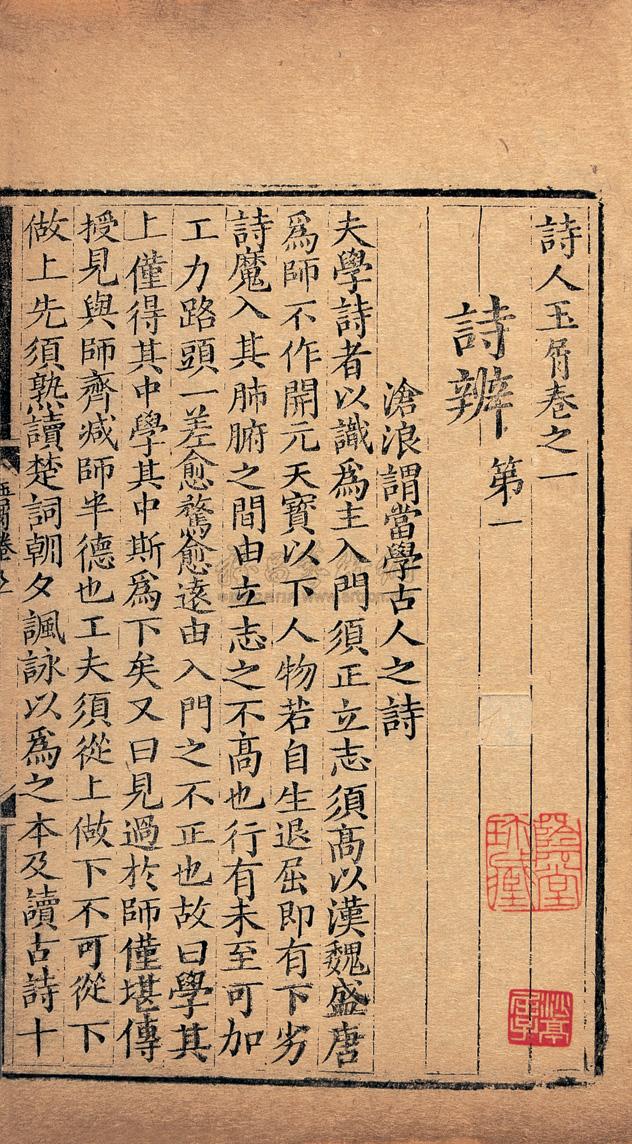 詩人玉屑卷之一
詩辨第一
滄浪謂當學古人之詩
夫學詩者以識爲主入門須正立志須高以漢魏盛唐
爲師不作開元天寶以下人物若自生退屈即有下劣
詩魔入其肺腑之間由立志之不高也行有未至可加
工力路頭一差愈騖愈遠由入門之不正也故曰學其
上僅得其中學其中斯爲下矣又曰見過於師僅堪傳
授見與師齊减師半德也工夫須從上做下不可從下
做上先須熟讀楚詞朝夕諷詠以爲之本及讀古詩十